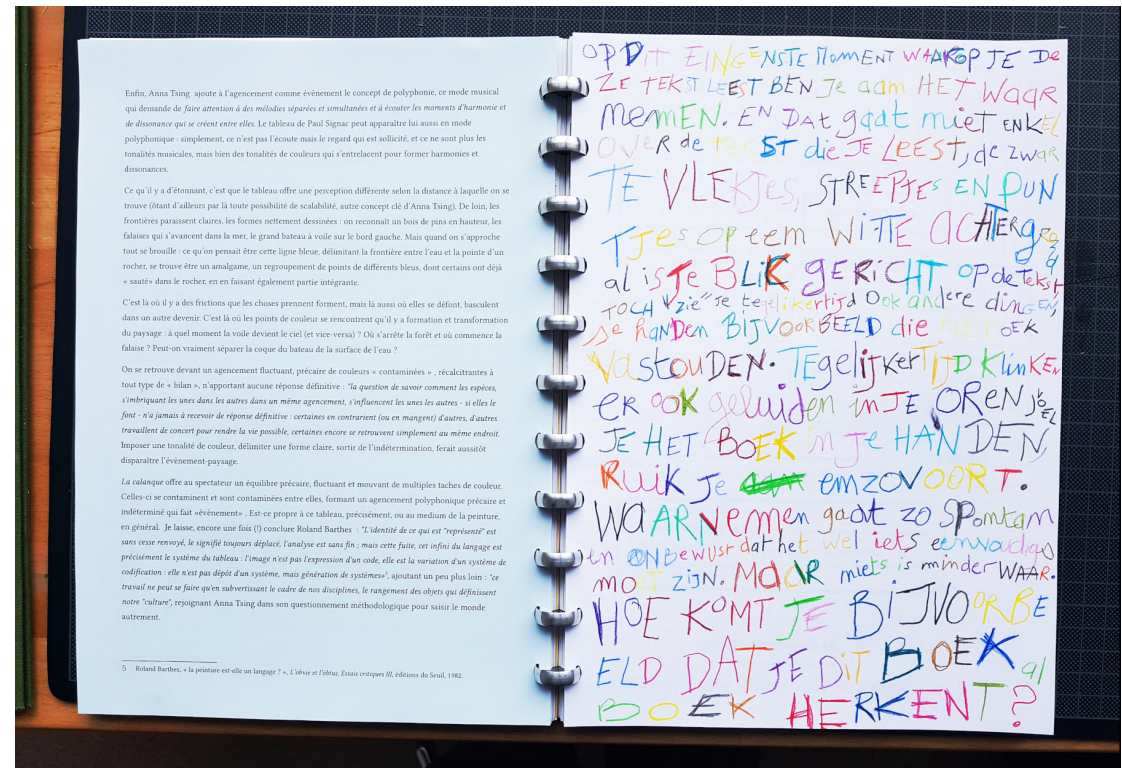 Enfin, Anna Tsing ajoute à l'agencement comme évènement le concept de polyphonie, ce mode musical
qui demande de faire attention à des mélodies séparées et simultanées et à écouter les moments d'harmonie et
de dissonance qui se créent entre elles. Le tableau de Paul Signac peut apparaître lui aussi en mode
polyphonique : simplement, ce n'est pas l'écoute mais le regard qui est sollicité, et ce ne sont plus les
tonalités musicales, mais bien des tonalités de couleurs qui s'entrelacent pour former harmonies et
dissonances.
Ce qu'il y a d'étonnant, c'est que le tableau offre une perception différente selon la distance à laquelle on se
trouve (ôtant d'ailleurs par là toute possibilité de scalabilité, autre concept clé d'Anna Tsing). De loin, les
frontières paraissent claires, les formes nettement dessinées : on reconnaît un bois de pins en hauteur, les
falaises qui s'avancent dans la mer, le grand bateau à voile sur le bord gauche. Mais quand on s'approche
tout se brouille : ce qu'on pensait être cette ligne bleue, délimitant la frontière entre l'eau et la pointe d'un
rocher, se trouve être un amalgame, un regroupement de points de différents bleus, dont certains ont déjà
« sauté» dans le rocher, en en faisant également partie intégrante.
C'est là où il y a des frictions que les choses prennent forment, mais là aussi où elles se défont, basculent
dans un autre devenir. C'est là où les points de couleur se rencontrent qu'il y a formation et transformation
du paysage : à quel moment la voile devient le ciel (et vice-versa) ? Où s'arrête la forêt et où commence la
falaise ? Peut-on vraiment séparer la coque du bateau de la surface de l'eau ?
On se retrouve devant un agencement fluctuant, précaire de couleurs « contaminées » , récalcitrantes à
tout type de « bilan », n'apportant aucune réponse définitive : "la question de savoir comment les espèces,
s'imbriquant les unes dans les autres dans un même agencement, s'influencent les unes les autres - si elles le
font - n'a jamais à recevoir de réponse définitive : certaines en contrarient (ou en mangent) d'autres, d'autres
travaillent de concert pour rendre la vie possible, certaines encore se retrouvent simplement au même endroit.
Imposer une tonalité de couleur, délimiter une forme claire, sortir de l'indétermination, ferait aussitôt
disparaître l'évènement-paysage.
La calanque offre au spectateur un équilibre précaire, fluctuant et mouvant de multiples taches de couleur.
Celles-ci se contaminent et sont contaminées entre elles, formant un agencement polyphonique précaire et
indéterminé qui fait «évènement» . Est-ce propre à ce tableau, précisément, ou au medium de la peinture,
en général. Je laisse, encore une fois (!) conclure Roland Barthes : "L'identité de ce qui est "représenté" est
sans cesse renvoyé, le signifié toujours déplacé, l'analyse est sans fin ; mais cette fuite, cet infini du langage est
précisément le système du tableau : l'image n'est pas l'expression d'un code, elle est la variation d'un système de
codification : elle n'est pas dépôt d'un système, mais génération de systèmes»⁵, ajoutant un peu plus loin : "ce
travail ne peut se faire qu'en subvertissant le cadre de nos disciplines, le rangement des objets qui définissent
notre "culture", rejoignant Anna Tsing dans son questionnement méthodologique pour saisir le monde
autrement.
5 Roland Barthes, « la peinture est-elle un langage ? », L'obvie et l'obtus, Essais critiques III, éditions du Seuil, 1982.
OP DIT EINGENSTE MomENT WAAROP JE De
ZE TEKST LEEST BEN Je aam HET WaaR
MemEN. EN DAt gaat miet ENKEL
OVER de TEKST die JE LEEST, de zwar
TE VLEKJES, STREEPJES EN PUN
TJes op eem WITTE ACHTERgRO
al is Je BLIK GERICHT OP de Tekst
TOCH "zie" je tegelijkertijd Ook andere dingEN,
je haNDen BIJVOORBEELD die het BOEK
VastouDEN. TEgelijkerTIJD KlinkEN
ER OOK geluiden in JE OREN, VOEL
JE HET BOEK in je HANDEN,
RuiK Je emzoVOORT.
WAARNEMEN gaat zo SPomtam
en ONBewust dat het wel iets eenvoudigs
moET ZIJN. MAAR niets is minder WAAR.
HOE KOMT JE BIJVOORBE
ELD DAT JE DIT BOEK al
BOEK HERKENT?